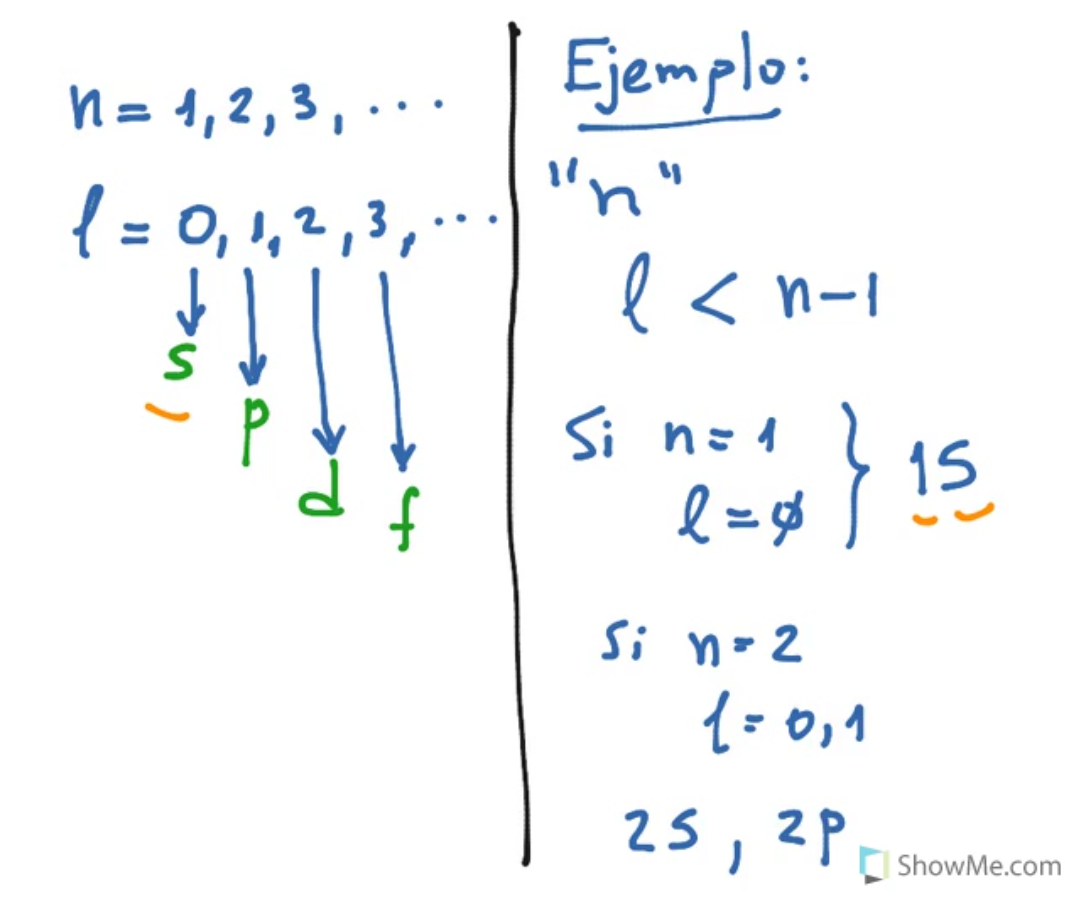 n = 1, 2, 3, ...
l = 0, 1, 2, 3, ...
s
p
d
f
Ejemplo:
"n"
l < n-1
Si n = 1
l = ø
} 1S
Si n = 2
l = 0, 1
2S, 2p
ShowMe.com